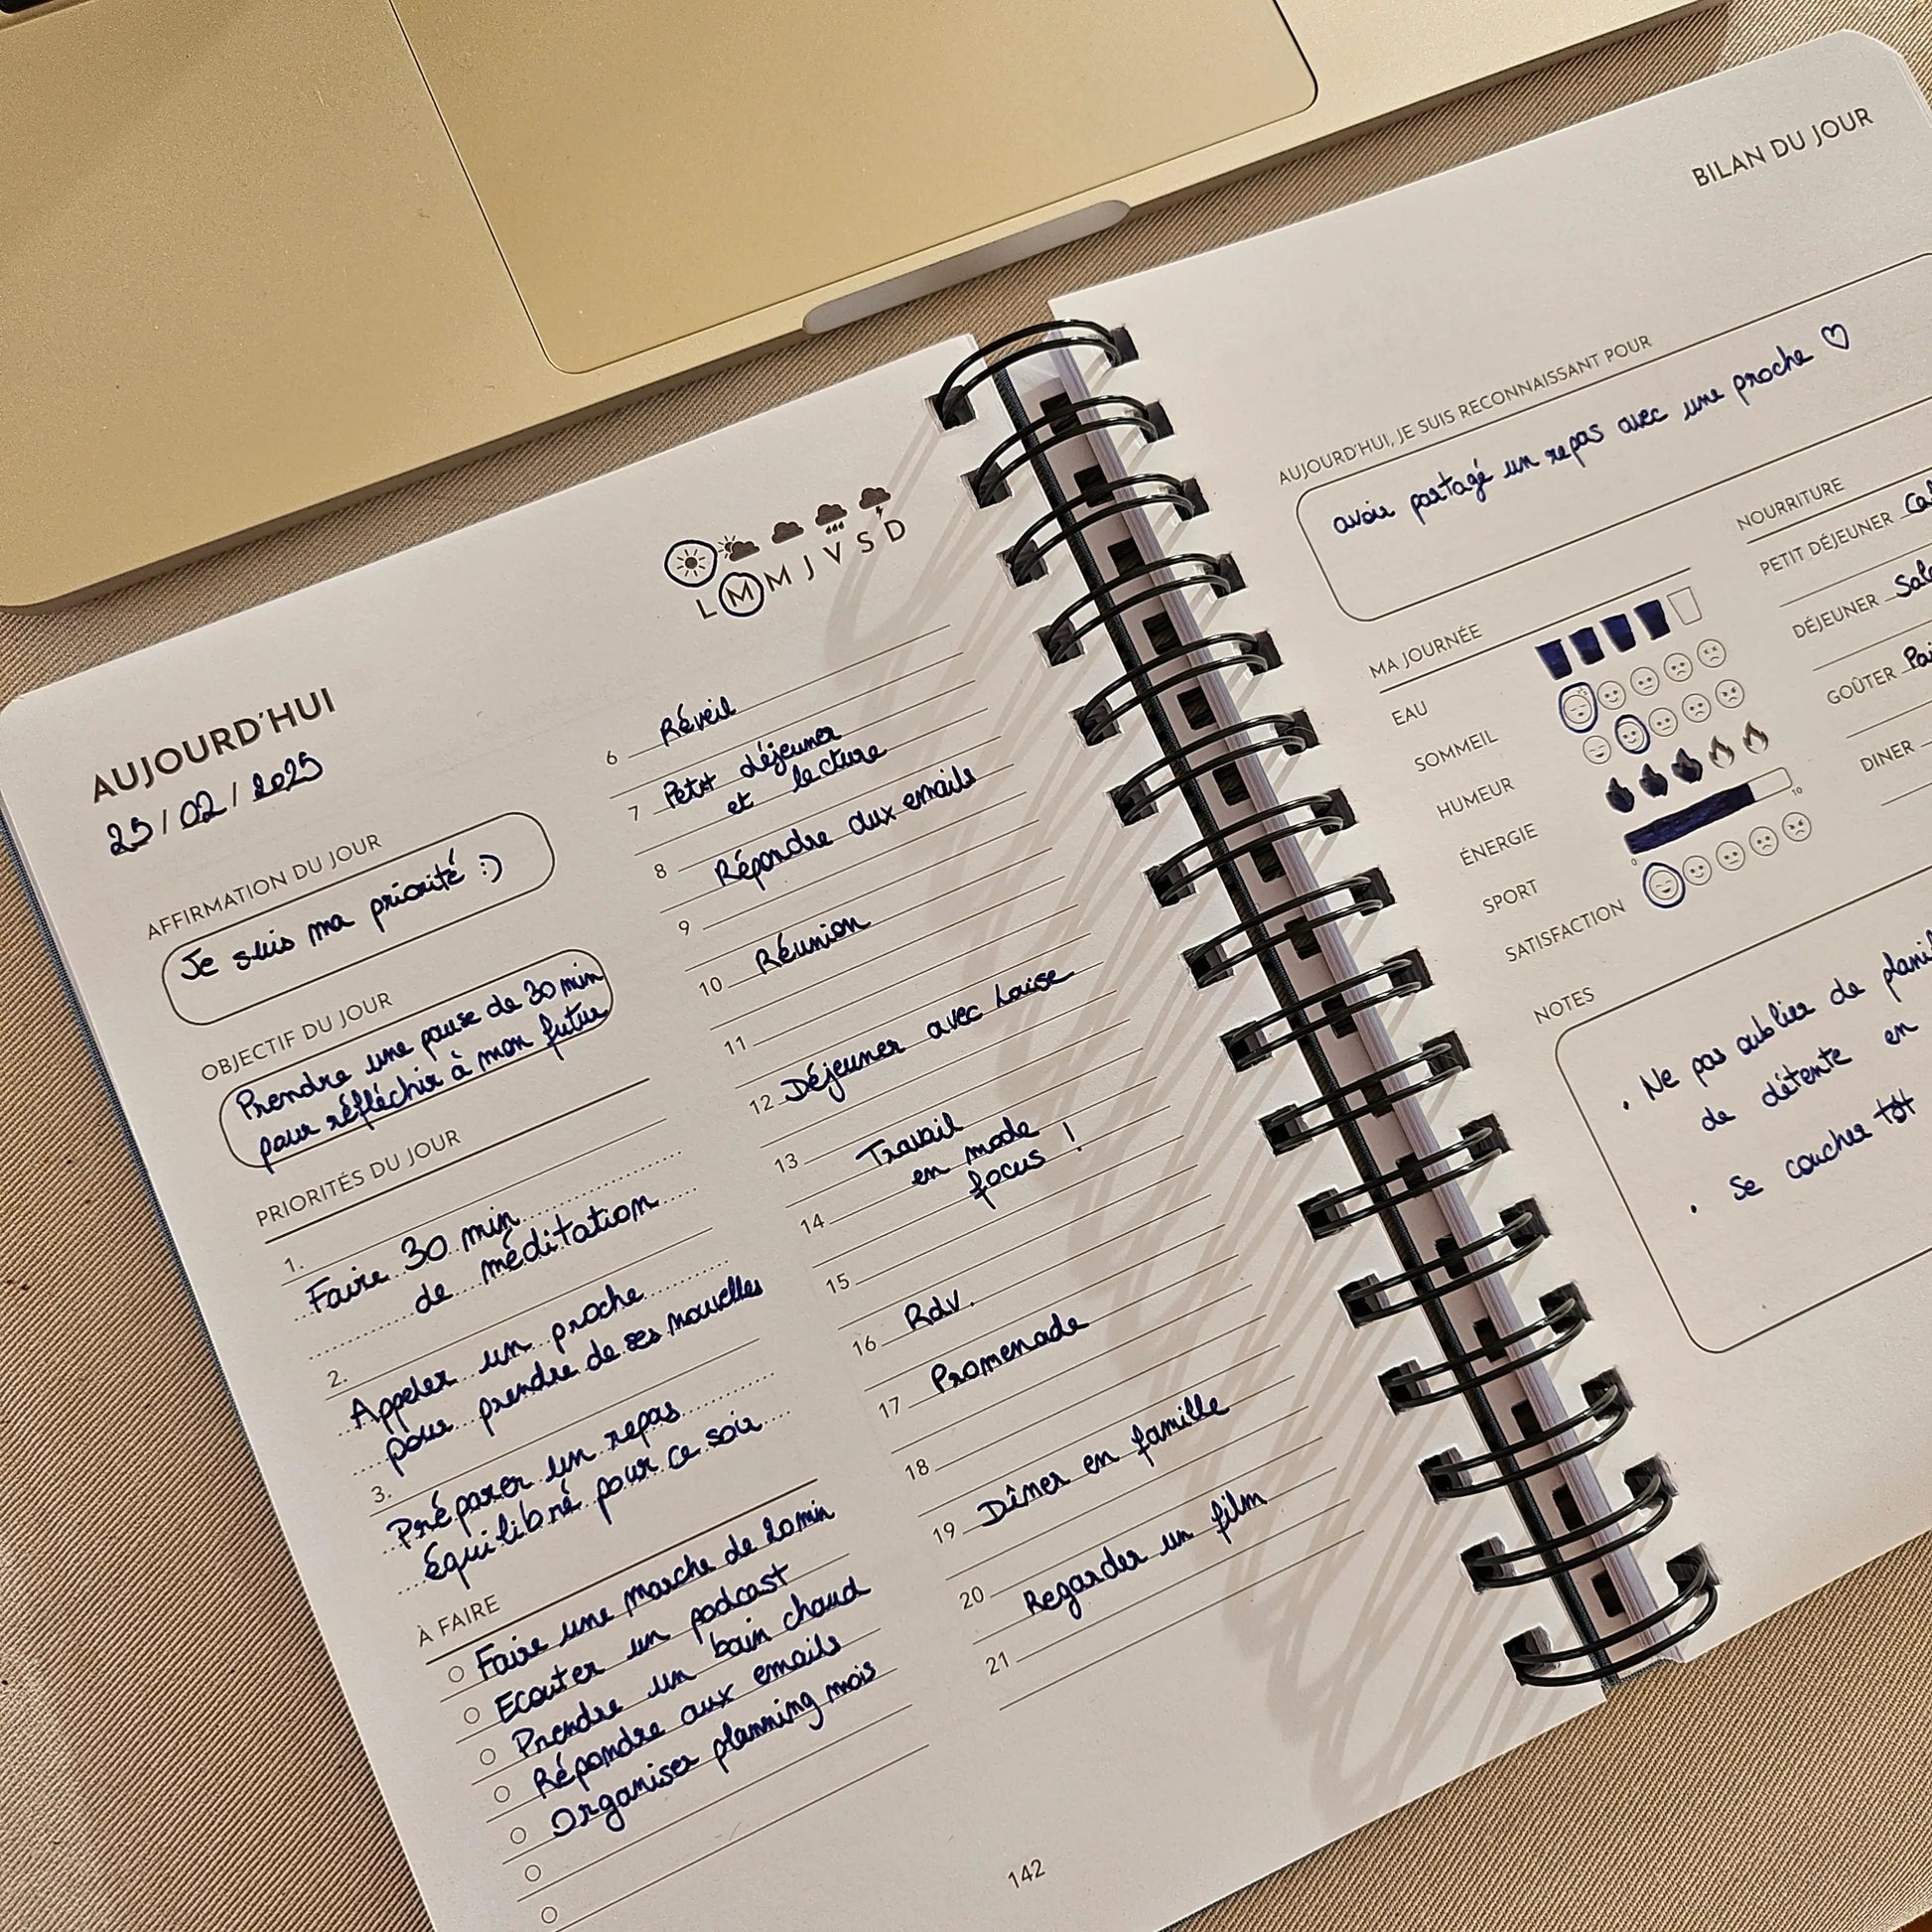 AUJOURD'HUI
25/02/2025
AFFIRMATION DU JOUR
Je suis ma priorité :)
OBJECTIF DU JOUR
Prendre une pause de 30 min
pour réfléchir à mon futur
PRIORITÉS DU JOUR
1.
Faire 30 min
de méditation
2.
Appeler un proche
pour prendre de ses nouvelles
3.
Préparer un repas
équilibré pour ce soir
À FAIRE
Faire une marche de 20min
Ecouter un podcast
Prendre un bain chaud
Répondre aux emails
Organiser planning mois
L M M J V S D
6 Réveil
7 Petit déjeuner
et lecture
8 Répondre aux emails
9
10 Réunion
11
12 Déjeuner avec Louise
13 Travail
en mode
14 focus !
15
16 Rdv.
17 Promenade
18
19 Dîner en famille
20 Regarder un film
21
142
BILAN DU JOUR
AUJOURD'HUI, JE SUIS RECONNAISSANT POUR
avoir partagé un repas avec une proche ♡
MA JOURNÉE
EAU
SOMMEIL
HUMEUR
ÉNERGIE
SPORT
0 10
SATISFACTION
NOURRITURE
PETIT DÉJEUNER
DÉJEUNER
GOÛTER
DINER
NOTES
. Ne pas oublier de
de détente en
. Se coucher tôt